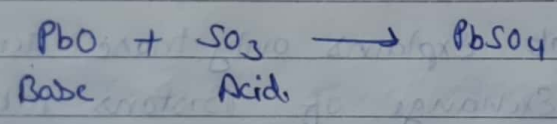 PbO + SO3 → PbSO4
Base Acid.